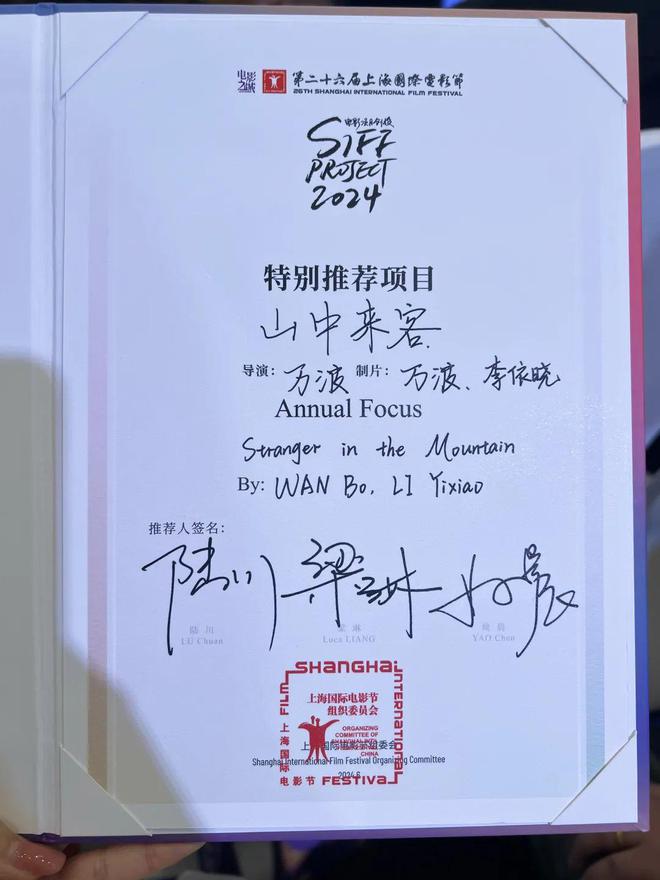 电影之城 第二十六届上海國際電影節
26TH SHANGHAI INTERNATIONAL FILM FESTIVAL
电影项目创投
SIFF
PROJECT
2024
特别推荐项目
山中来客
导演：万波 制片：万波、李依晓
Annual Focus
Stranger in the Mountain
By: WAN Bo, LI Yixiao
推荐人签名：
陆川 梁琳 姚晨
陆川 梁琳 姚晨
LU Chuan Luca LIANG YAO Chen
SHANGHAI
INTERNATIONAL
FILM
FESTIVAL
上海国际电影节
上海国际电影节
组织委员会
ORGANIZING
COMMITTEE OF
CHINA
上海国际电影节组委会
Shanghai International Film Festival Organizing Committee
2024.6